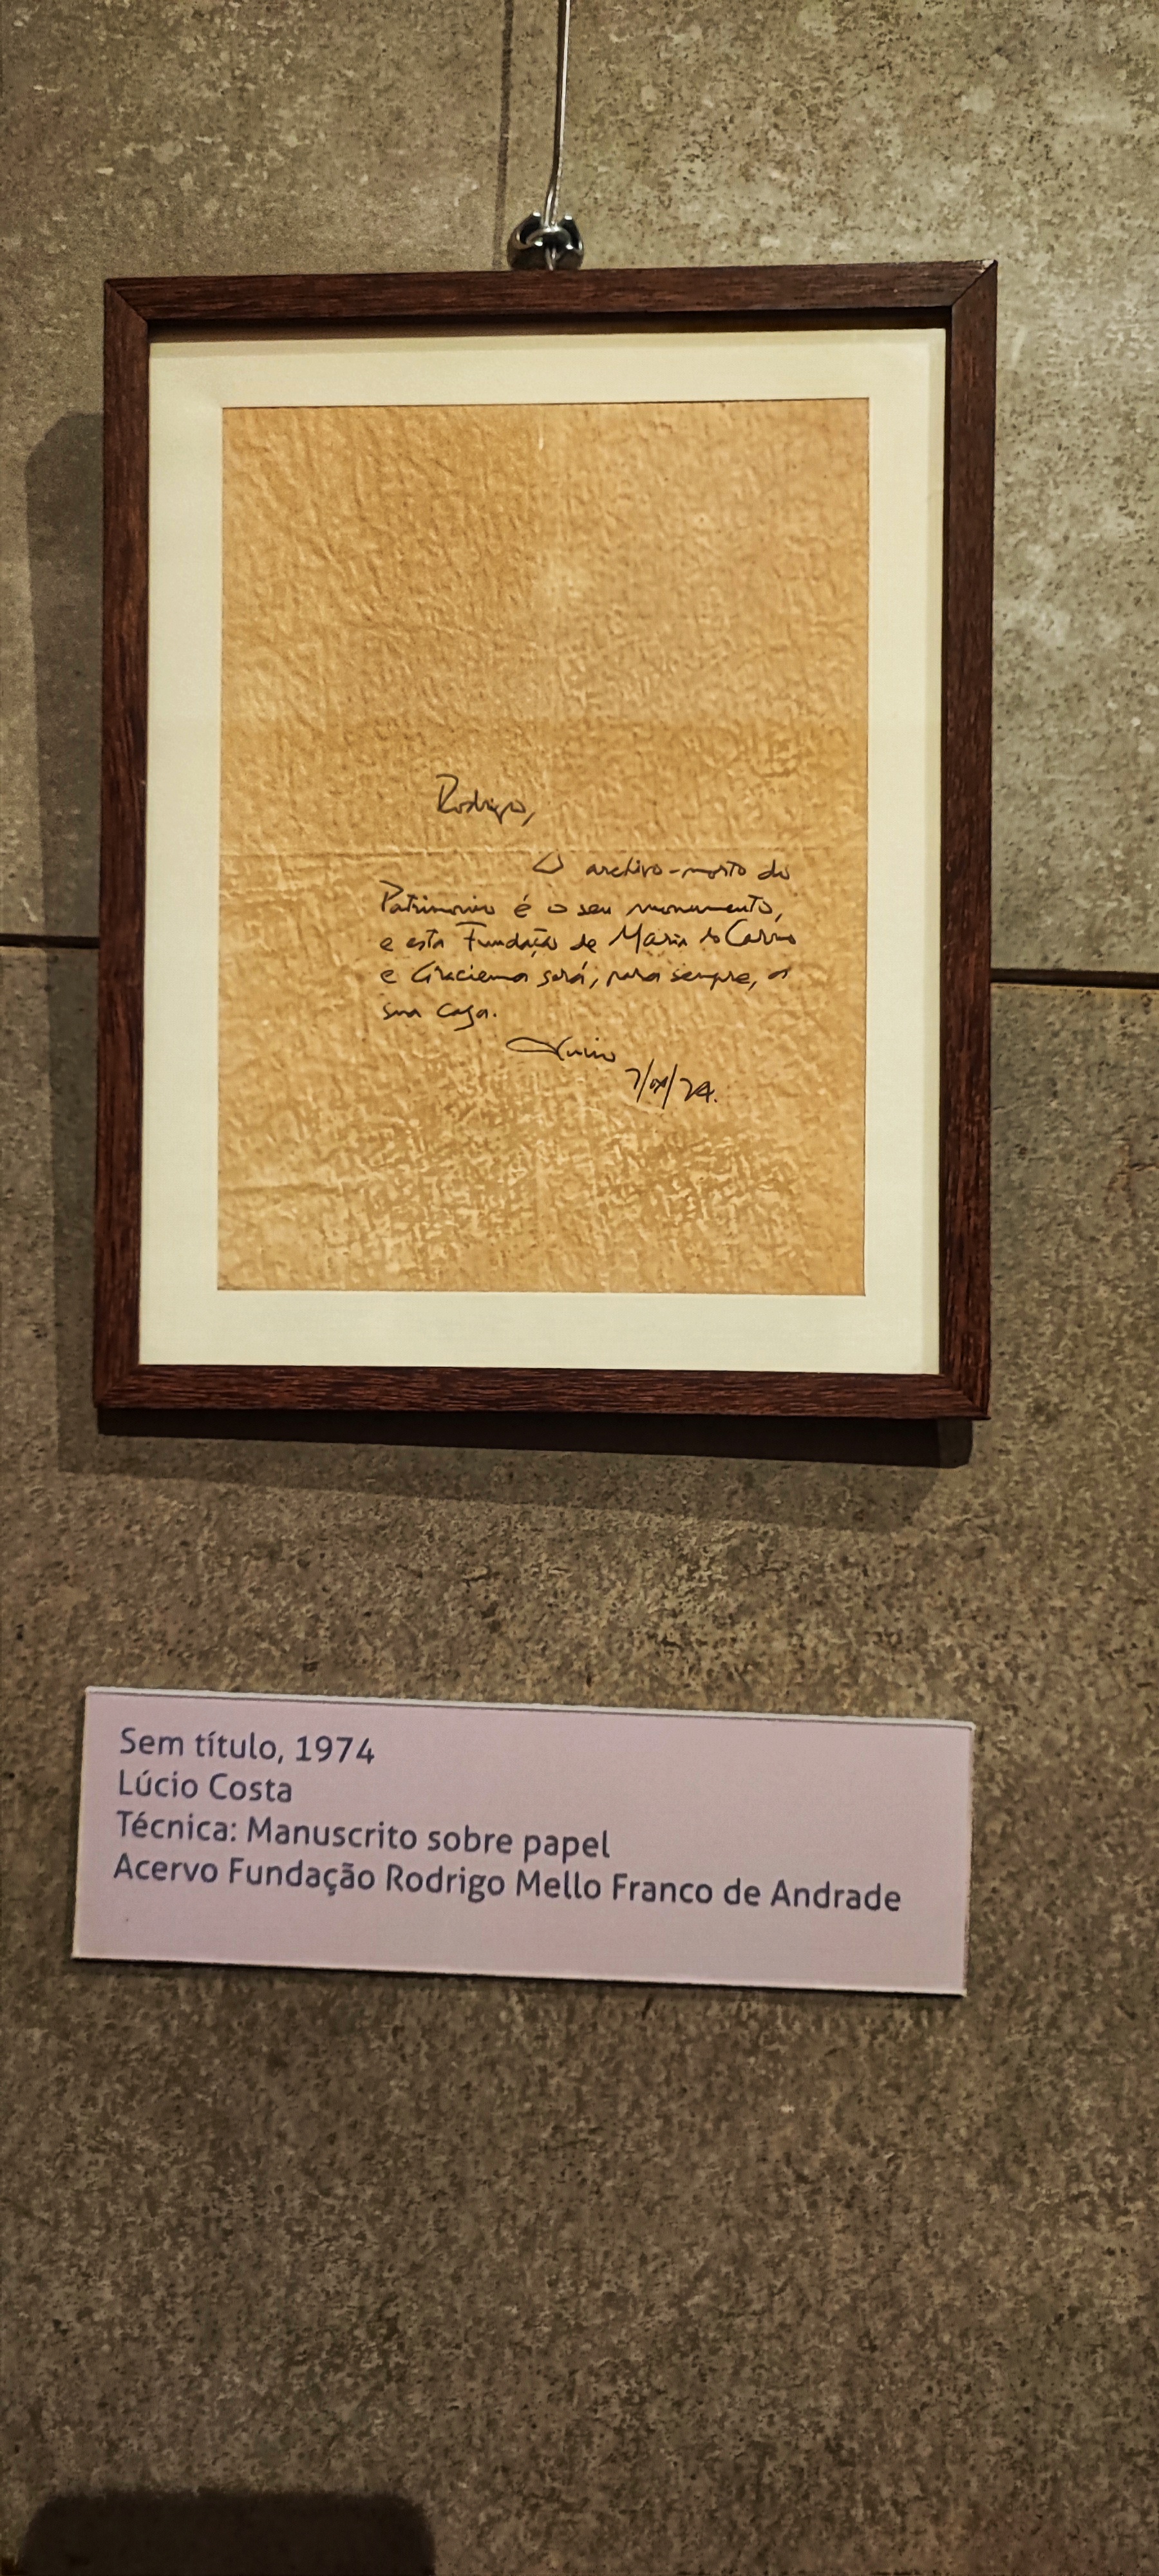 Rodrigo,
O archivo-morto do
Patrimonio é o seu monumento,
e esta Fundação de Maria do Carmo
e Graciema será, para sempre, a
sua casa.
Lucio
Sem título, 1974
Lúcio Costa
Técnica: Manuscrito sobre papel
Acervo Fundação Rodrigo Mello Franco de Andrade